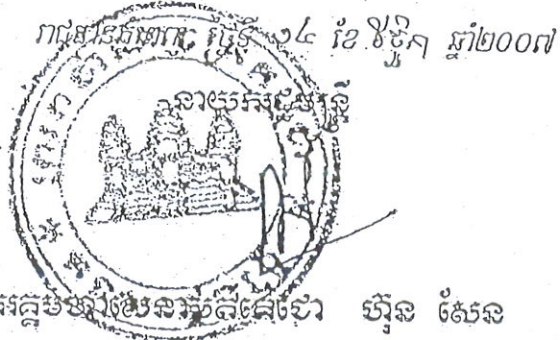 រាជធានីភ្នំពេញ ថ្ងៃទី ១៤ ខែ វិច្ឆិកា ឆ្នាំ២០០៧
នាយករដ្ឋមន្ត្រី
អគ្គមហាសេនាបតីតេជោ ហ៊ុន សែន